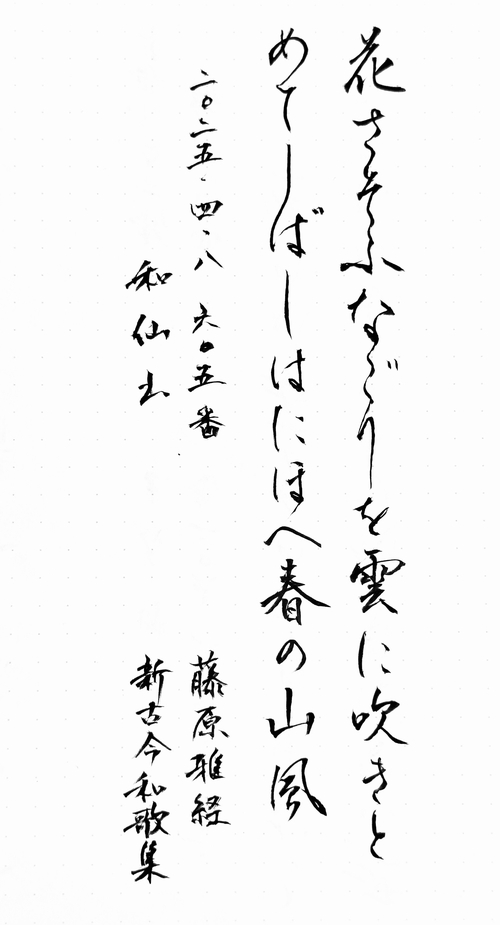 花さそふなごりを雲に吹きと
めてしばしはにほへ春の山風
二〇二五・四・八 六〇五番
藤原雅経
和仙
新古今和歌集